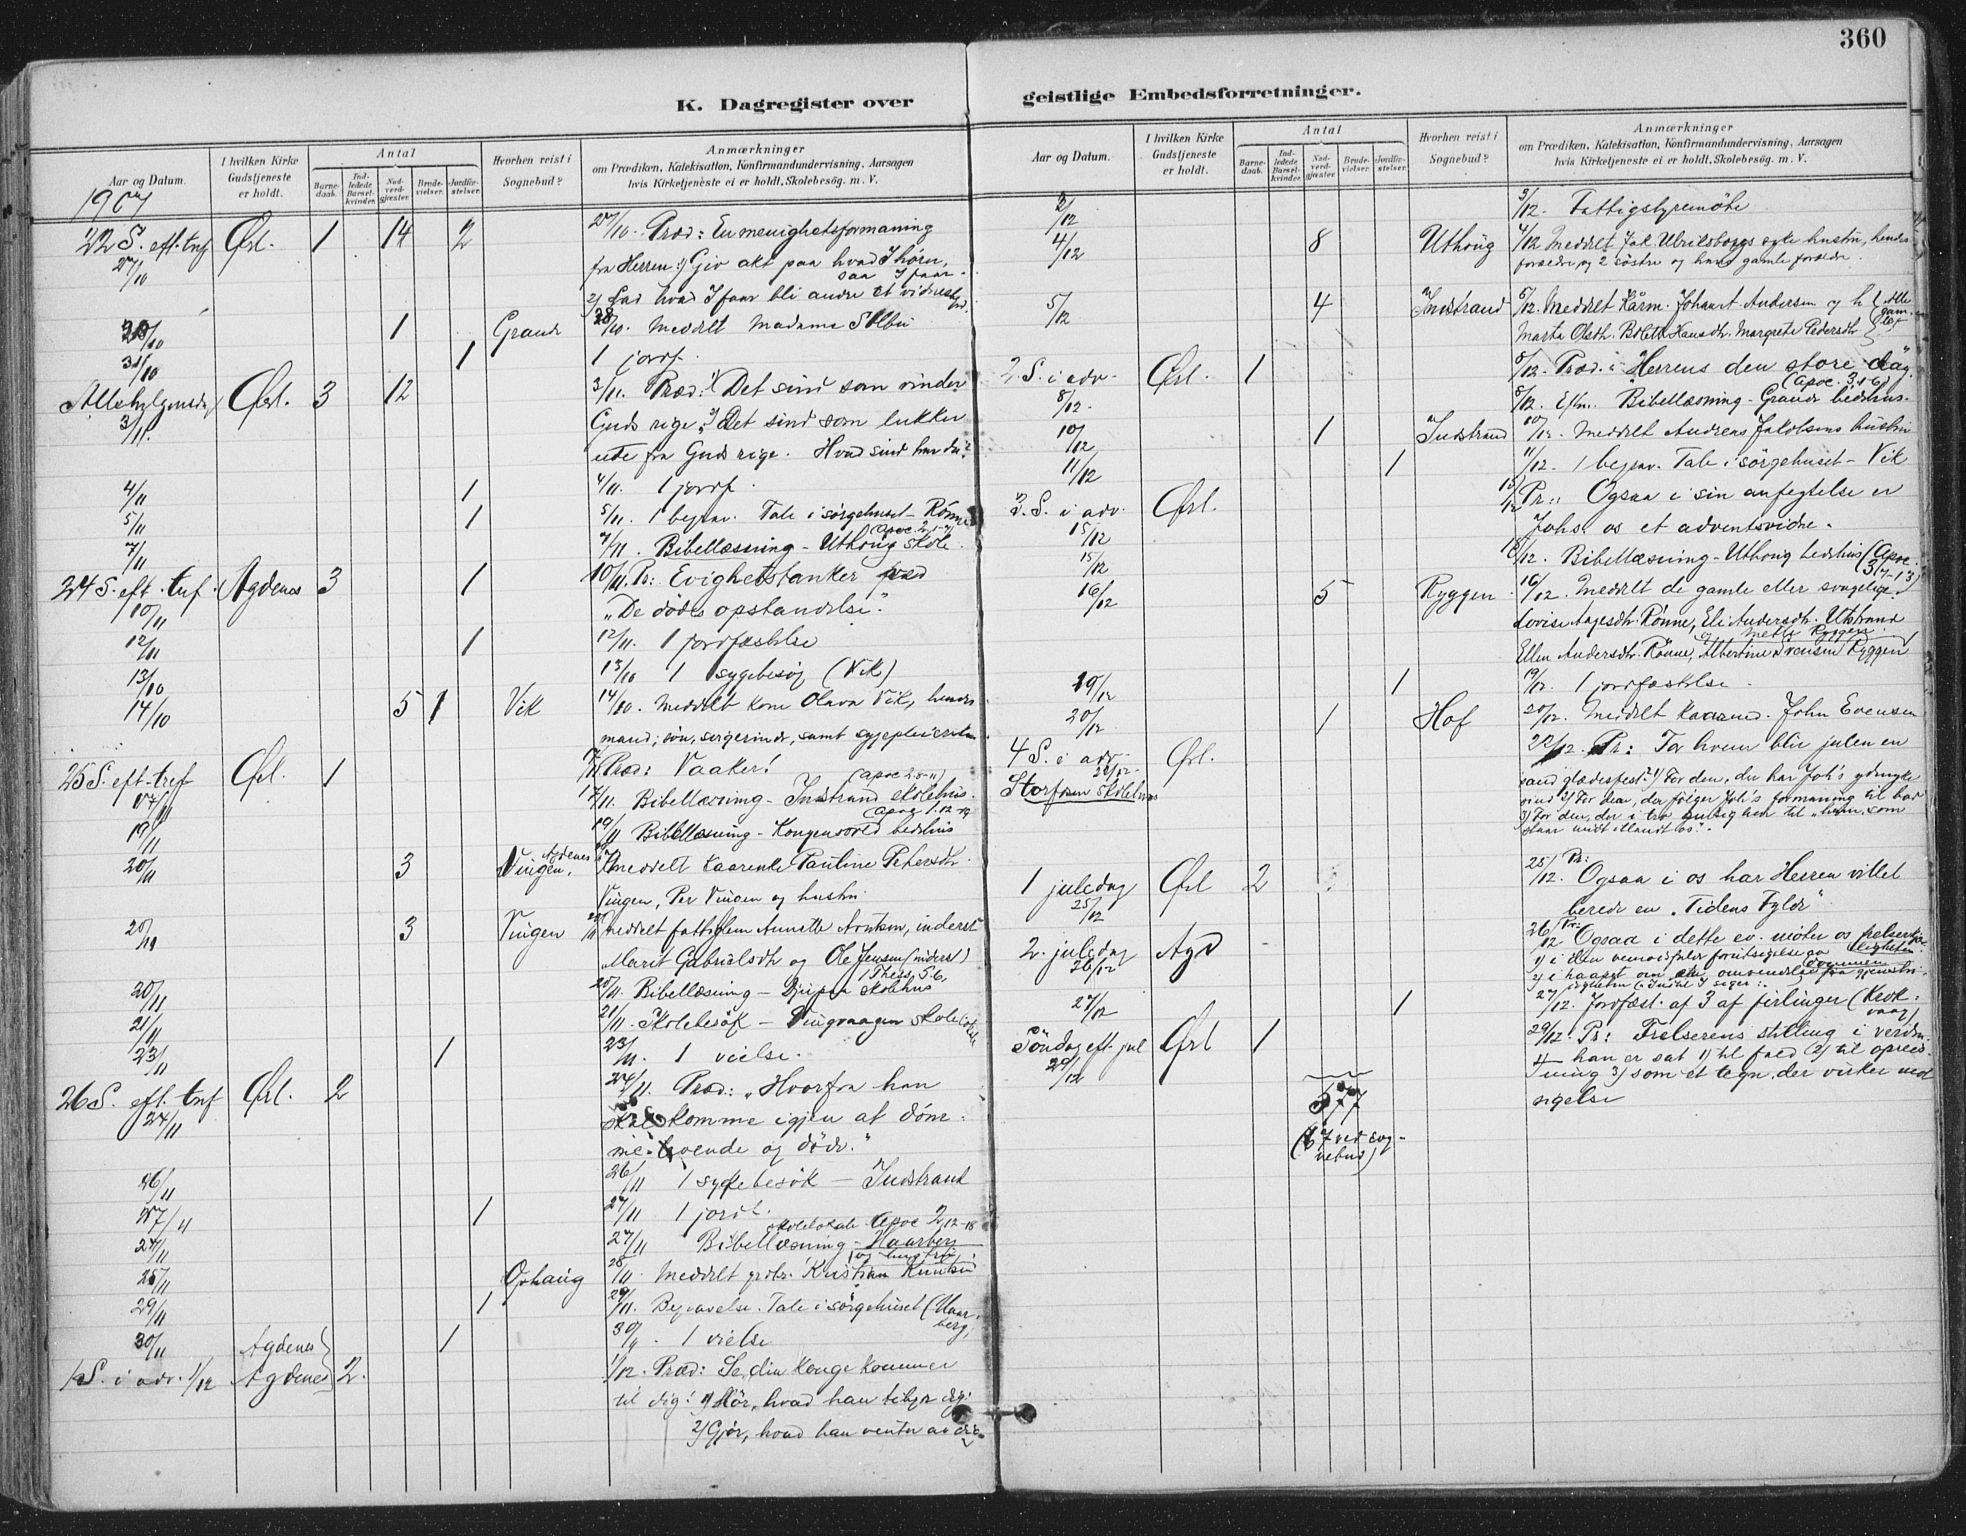 360
K. Dagregister over
geistlige Embedsforretninger.
Aar og Datum.
I hvilken Kirke Gudstjeneste er holdt.
Antal
Barnedaab.
Indledede Barselkvinder.
Nadverdgjæster.
Brudevielser.
Jordfæstelser.
Hvorhen reist i Sognebud?
Anmærkninger
om Prædiken, Katekisation, Konfirmandundervisning, Aarsagen
hvis Kirketjeneste ei er holdt, Skolebesøg. m. V.
1907
22 S. eft. tref Ørl. 1 14 2 27/10. Præd: En menighetsformaning
27/10 fra Herren: 1) Giv akt paa hvad I hører,
2) Lad hvad I saa I faar bli andre et vidnesbyrd.
1 Grande 28/10. Meddelt Madame Solbu
31/10 1 1 jordf.
Allehelgensd. 3/11. Ørl. 3 12 3/11. Præd: 1) Det sind som vinder
Guds rige. 2) Det sind som lukker
ute fra Guds rige. Hvad sind har du?
4/11 1 4/11. 1 jordf.
5/11 1 5/11. 1 begrav. Tale i sørgehuset - Rønne
7/11 7/11. Bibellæsning - Uthoug skole. (Apoc. 2,1-7)
24 S. eft. tref. Agdenes 3 1 10/11. Pr: Evighetstanker ved
10/11 "De dødes opstandelse".
12/11 1 12/11. 1 jordfæstelse
13/10 13/10 1 sygebesøg (Vik)
14/10 5 1 Vik 14/10. Meddelt kone Olava Vik, hendes
mand, søn, svigerinde, samt sygepleiersken
25 S. eft. tref Ørl. 1 17/11 Præd: Vaaker!
17/11 17/11. Bibellæsning - Indstrand skolehus. (Apoc 2.8-11)
19/11 19/11 Bibellæsning - Kongensvold bedehus (Apoc 1.12-19
20/11 3 Vingen, Agdenes Meddelt kaarenke Pauline Petersdtr.
Vingen, Per Vingen og hustru
20/11 3 Vingen Meddelt fattiglem Annette Arntsen, inderst
Marit Gabrielsdtr og Ole Jensen (inderst)
20/11 20/11. Bibellæsning - skolehus 1 Thess. 5.6.
21/11 21/11. Skolebesøk - Vingvaagen skolelokale
23/11 1 23/11. 1 vielse.
26 S. eft. tref Ørl. 2 24/11. Præd: "Hvorfra han
24/11 skal komme igjen at døm-
me levende og døde."
26/11 26/11 1 sykebesøk - Indstrand
27/11 1 27/11 1 jordf.
27/11 27/11 Bibellæsning - Haarberg skolelokale Apoc 2,12-18
28/11 Ophaug 28/11. Meddelt grdbr. Kristian Knutsen og hustru
29/11 1 29/11. Begravelse. Tale i sørgehuset (Haarberg)
30/11 Agdenes 1 30/11. 1 vielse
1 S. i adv. 1/12 Agdenes 2. 1/12. Præd: Se, din Konge kommer
til dig! 1) Hør, hvad han tilbyr dig.
2) Gjør, hvad han venter av dig.
Aar og Datum.
I hvilken Kirke Gudstjeneste er holdt.
Antal
Barnedaab.
Indledede Barselkvinder.
Nadverdgjæster.
Brudevielser.
Jordfæstelser.
Hvorhen reist i Sognebud?
Anmærkninger
om Prædiken, Katekisation, Konfirmandundervisning, Aarsagen
hvis Kirketjeneste ei er holdt, Skolebesøg. m. V.
3/12. Fattigstyremøte
4/12 8 Uthoug 4/12 Meddelt Jak. Ulriksborgs syke hustru, hendes
forældre og 2 søstre og hans gamle forældre.
5/12 4 Indstrand 5/12. Meddelt Kårm. Johan A. Andersen og h. (Alle gamle)
Marta Olsdtr. Bolette Hansdtr. Margrete Pedersdtr
2 S. i adv. 8/12. Ørl. 1 8/12. Præd. i Herrens den store dag.
8/12. Eftm. Bibellæsning - Grande bedehus. (Apoc. 3,1-6)
10/12 1 Indstrand 10/12. Meddelt Andreas Jakobsens hustru
11/12 1 11/12. 1 begrav. Tale i sørgehuset - Vik
3. S. i adv. 15/12 Ørl. 15/12 Pr: Ogsaa i sin anfegtelse er
Johs. os et adventsvidne.
15/12 15/12. Bibellæsning - Uthoug bedehus (Apoc. 3,7-13)
16/12 5 Ryggen 16/12. Meddelt de gamle eller svagelige:
Lovise Aagesdtr. Rønne, Eli Andersdtr. Utstrand
Ellen Andersdtr. Rønne, Albertine Svensen Ryggen og Mette Ryggen
19/12 1 19/12. 1 jordfæstelse.
20/12 1 Hof 20/12. Meddelt kaarmd. John Evensen
4 S. i adv. 22/12. Ørl. 22/12. Pr: For hvem blir julen en
Storfosen Skolehus sand glædesfest? 1) For den, der har Joh's ydmyge
sind 2) For den, der følger Joh's formaning til bod
3) For den, der i tro hen til "ham, som
staar midt iblandt os".
1 juledag 25/12 Ørl 2 25/12. Pr: Ogsaa i os har Herren villet
berede en "Tidens Fylde"
2. juledag 26/12 Agd 26/12 Pr: Ogsaa i dette ev. møter os frelserkjærligheten
1) i den forutsigelse av dommen
2) i haapet om omvendelse fra gjenstri-
digheten (indtil I siger:
27/12 1 27/12. Jordfæst. af 3 af firlinger (Krokvaag)
Søndag eft jul 29/12 Ørl 1 29/12. Pr: Frelserens stilling i verden
- han er sat 1) til fald 2) til opreis-
ning 3) som et tegn, der virker mot
sigelse
577
(67 ved sognebud)